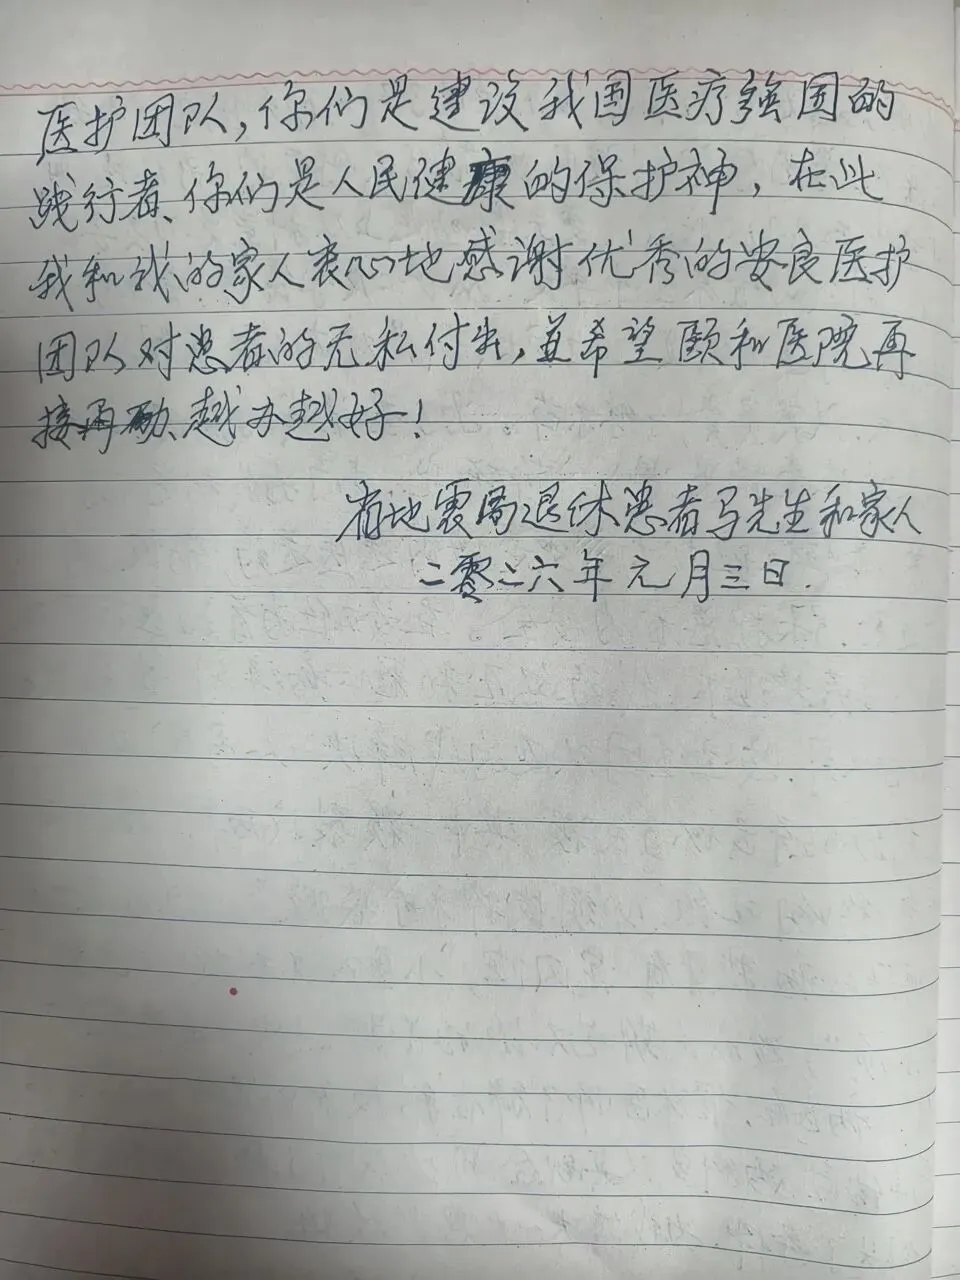 医护团队,你们是建设我国医疗强国的
践行者、你们是人民健康的保护神,在此
我和我的家人衷心地感谢优秀的安良医护
团队对患者的无私付出,并希望颐和医院再
接再励、越办越好!
省地震局退休患者马先生和家人
二零二六年元月三日.